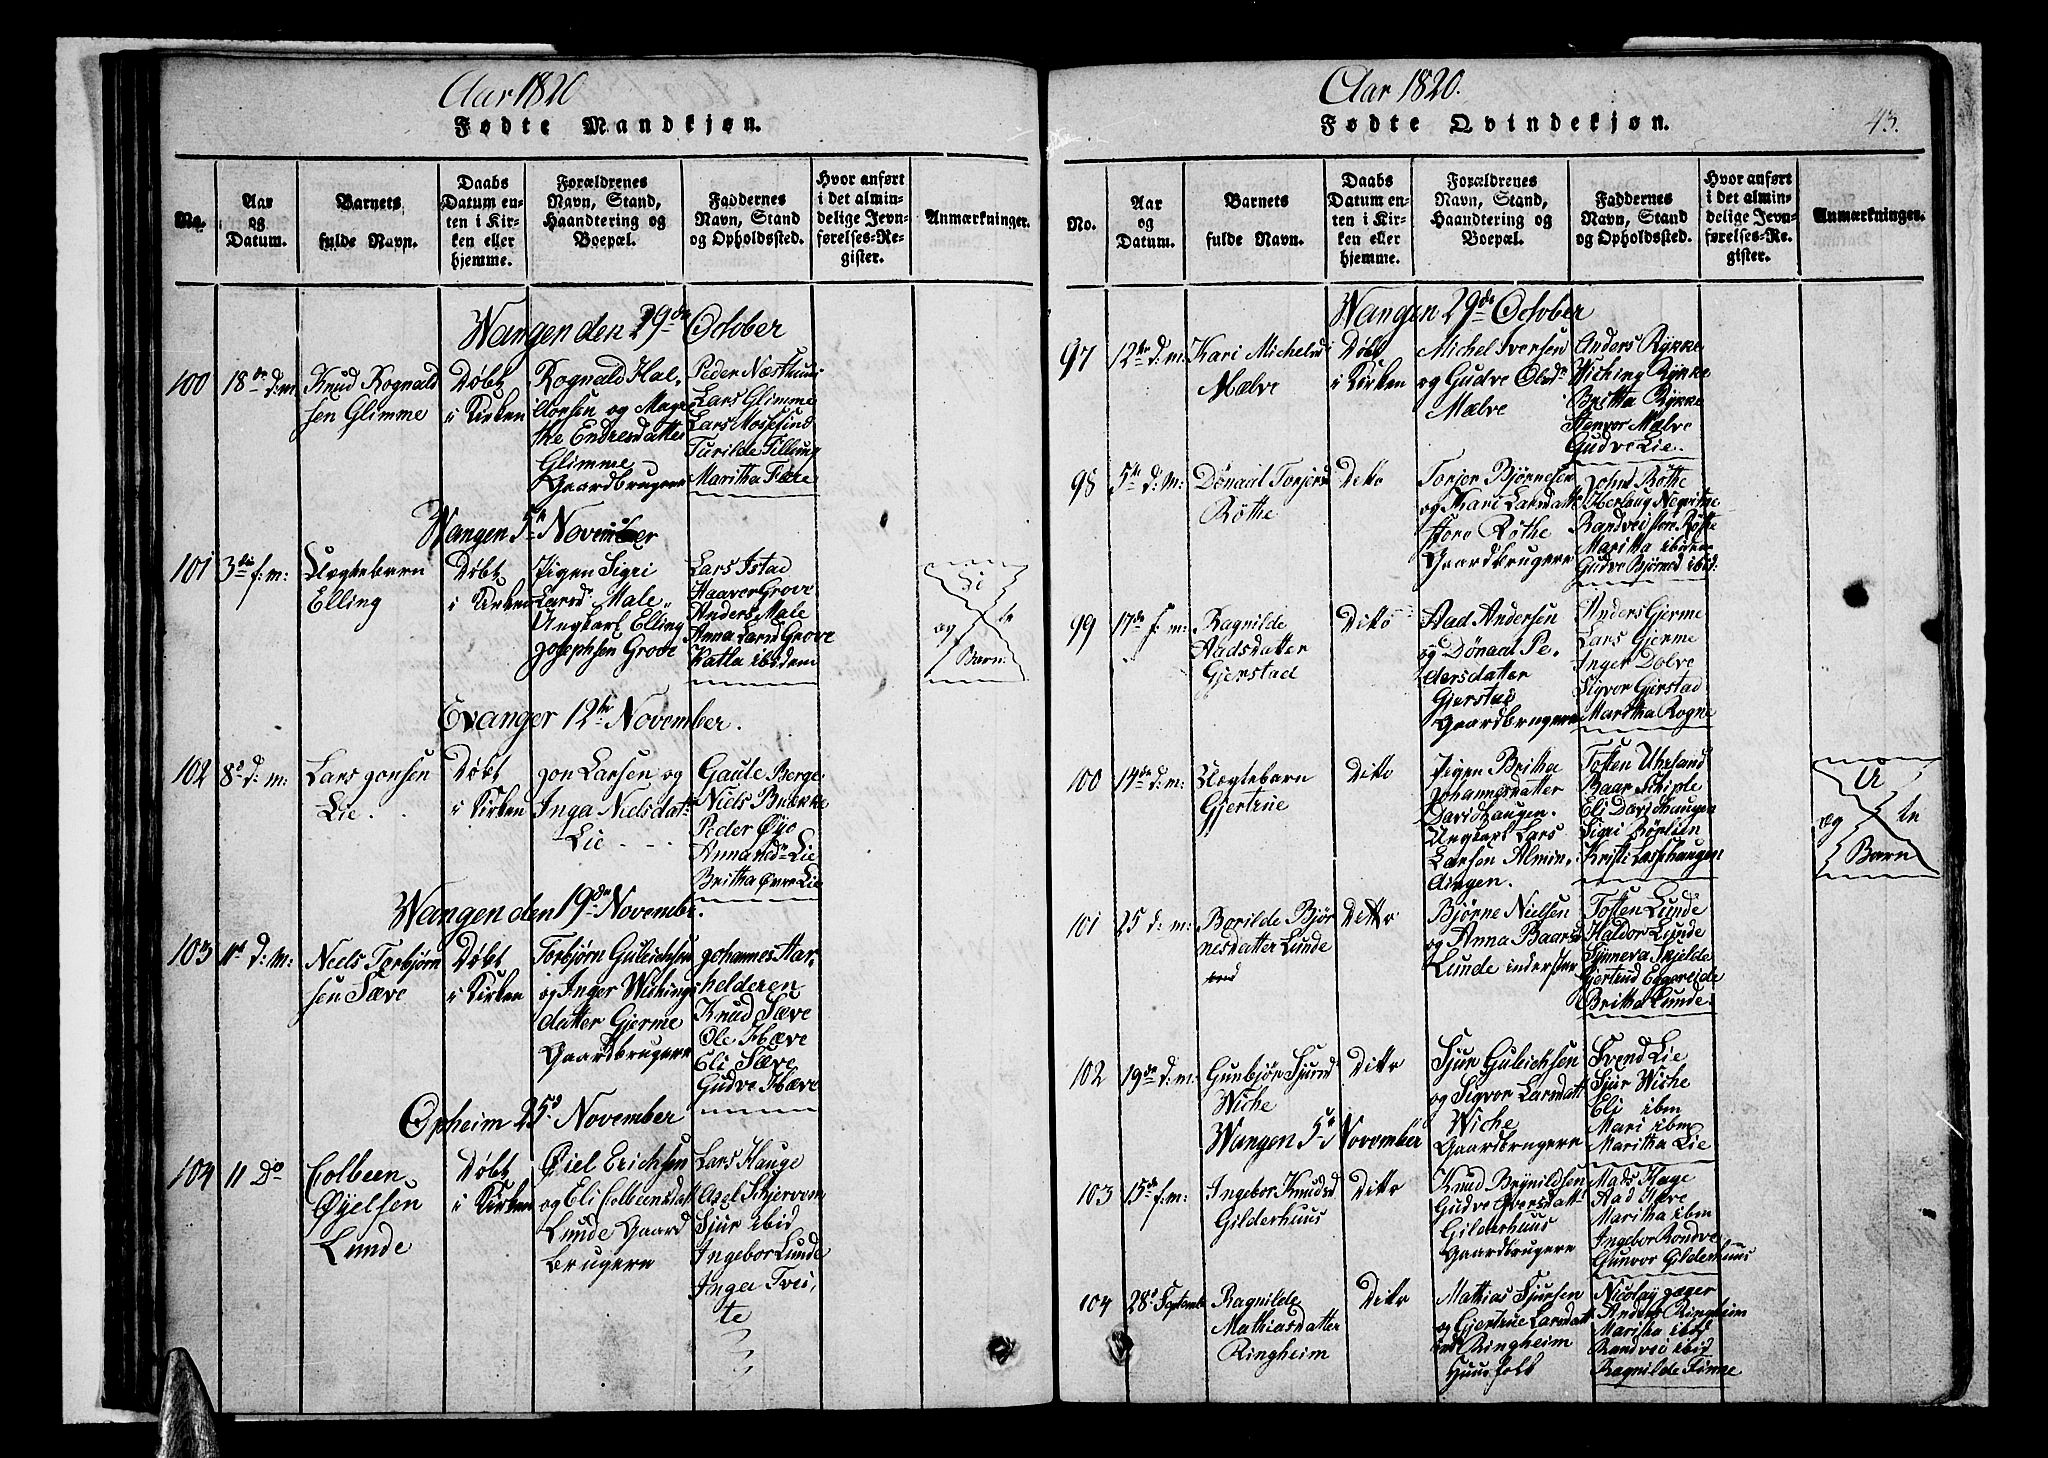 Aar 1820
Fødte Mandkjøn.
No.
Aar
og
Datum.
Barnets
fulde Navn.
Daabs
Datum en-
ten i Kir-
ken eller
hjemme.
Forældrenes
Navn, Stand,
Haandtering og
Boepæl.
Faddernes
Navn, Stand
og Opholdssted.
Hvor anført
i det almin-
delige Jevn-
førelses-Re-
gister.
Anmærkninger.
Wangen den 29de October
100
18de d: m:
Knud Rognald
sen Glimme
Døbt
i Kirken
Rognald Hal-
dorsen og Mage
the Endresdatter
Glimme
Gaardbrugere
Peder Næsthuus
Lars Glimme
Lars Mosefind
Turilde Tillung
Maritha Fære
Wangen 5te November
101
3die f: m:
Uægtebarn
Elling
Døbt
i Kirken
Pigen Sigri
Larsd Male
Ungkarl Elling
Josephsen Grove
Lars Istad
Haaver Grove
Anders Male
Anna Larsd Grove
Katla ibidem
U
og te
Barn
Evanger 12te November.
102
8de d: m:
Lars Jonsen
Lie
Døbt
i Kirken
Jon Larsen og
Inga Nielsdat:
Lie
Gaute Berge
Niels Brække
Peder Øye
Anna Lie
Britha Øvre Lie
Wangen den 19de Novembr.
103
11te d: m:
Niels Torbjørn
sen Sæve
Døbt
i Kirken
Torbjørn Gulichsen
og Inger Wichings
datter Gjerme
Gaardbrugere
Johannes Aar-
helderen
Knud Sæve
Ole Hæve
Eli Sæve
Gudve Hæve
Opheim 25de November
104
11 Do
Colbeen
Øyelsen
Lunde
Døbt
i Kirken
Øiel Erichsen
og Eli Colbeensdatt
Lunde Gaard
Brugere
Lars Hauge
Axel Schjervem
Sjur ibid
Ingebor Lunde
Inga Tvei,
te
Aar 1820.
Fødte Qvindekjøn.
43.
No.
Aar
og
Datum.
Barnets
fulde Navn.
Daabs
Datum en-
ten i Kir-
ken eller
hjemme.
Forældrenes
Navn, Stand,
Haandtering og
Boepæl.
Faddernes
Navn, Stand
og Opholdssted.
Hvor anført
i det almin-
delige Jevn-
førelses-Re-
gister.
Anmærkninger.
Wangen 29de October
97
12te d: m:
Kari Michelsd
Mælve
Døbt
i Kirken
Michel Iversen
og Gudve Olsdr
Mælve
Anders Rykke
Wiching Rykke
Britta Rykke
Stenvor Mælve
Gudve Lie.
98
5te d: m:
Dønaal Torjersd
Røthe
Ditto
Torjer Bjørnesen
og Kari Larsdatt
store Røthe
Gaardbrugere
John Røthe
Herlaug
Randvei store Røthe
Maritha ibidem
Gudve Bjørnsd ibid
99
17de f: m:
Ragnilde
Aadsdatter
Gjerstad
Ditto
Aad Andersen
og Dønaal Pe,
dersdatter
Gjerstad
Gaardbrugere
Anders Gjerme
Lars Gjerme
Inger Dolve
Sigvor Gjerstad
Maritha Rogne
100
14de d: m:
Uægtebarn
Gjertrue
Ditto
Pigen Britha
Johannesdatter
Davidhaugen.
Ungkarl Lars
Larsen Almin,
dingen.
Tosten Uhrland
Baar Schiple
Eli Davidhaugen
Sigri Rørlien
Kristi Lassehaugen
U
og te
Barn
101
25 d: m:
Borilde Bjør
nesdatter Lunde
Ditto
Bjørne Nielsen
og Anna Baarsd
Lunde inderster
Tosten Lunde
Haldor Lunde
Synneva Skjelde
Gjertrud Eggereide
Britha Lunde.
102
19de d: m:
Gunbjør Sjursd
Wiche
Ditto
Sjur Gulichsen
og Sigvor Larsdatt
Wiche
Gaardbrugere
Svend Lie
Sjur Wiche
Eli ibm
Mari ibm
Maritha Lie
Wangen 5te November
103
15de f: m:
Ingebor Knudsd
Gilderhuus
Ditto
Knud Brynildsen
Gudve Iversdatt
Gilderhuus
Gaardbrugere
Mads Hage
Aad Hæve
Maritha ibm
Ingebor Rondve
Gunvor Gilderhuus
104
28de Septembr
Ragnilde
Mathiasdatter
Ringheim
Ditto
Mathias Sjursen
og Gjertrue Larsdatt
Ringheim
Huusfolk
Nicolay Jæger
Anders Ringheim
Maritha ibid
Randvei ibid
Ragnilde Finne